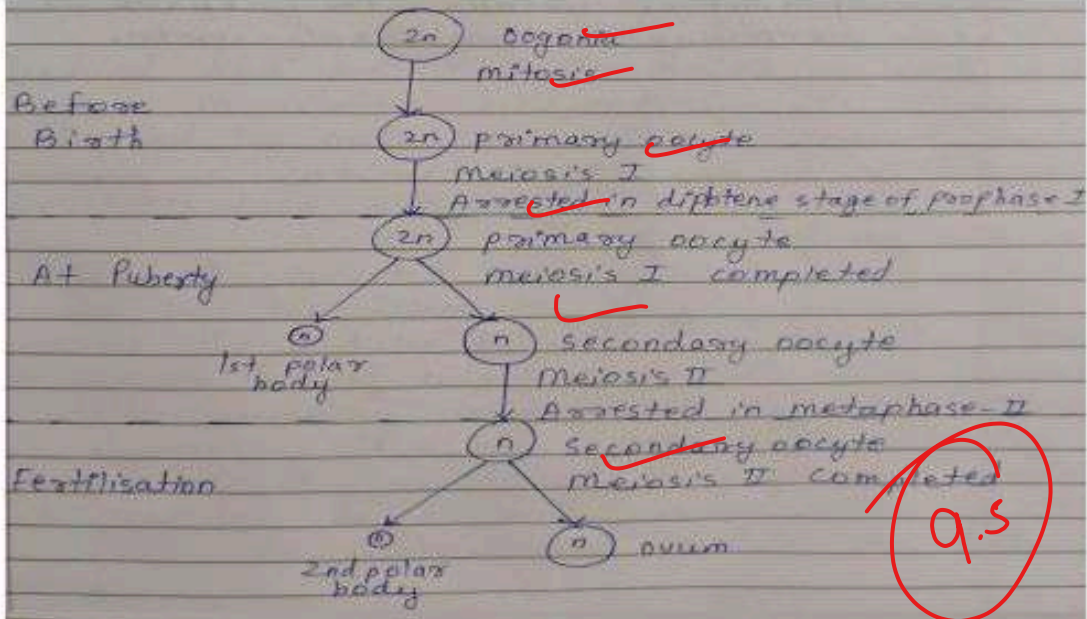 2n oogonia
mitosis
Before
Birth
2n primary oocyte
meiosis I
Arrested in diplotene stage of prophase-I
2n primary oocyte
At Puberty
meiosis I completed
n
n secondary oocyte
1st polar
body
Meiosis II
Arrested in metaphase-II
n secondary oocyte
Fertilisation
meiosis II completed
9.5
n
n ovum
2nd polar
body